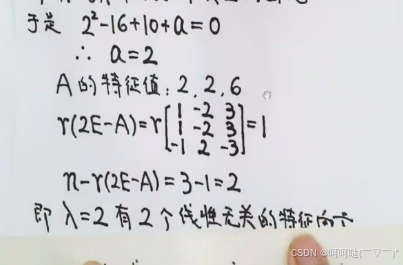 于是 2²-16+10+a=0
∴ a=2
A的特征值:2,2,6
r(2E-A)=r[1 -2 3
1 -2 3
-1 2 -3]=1
n-r(2E-A)=3-1=2
即λ=2有2个线性无关的特征向
CSDN @呵呵哒(￣▽￣)"